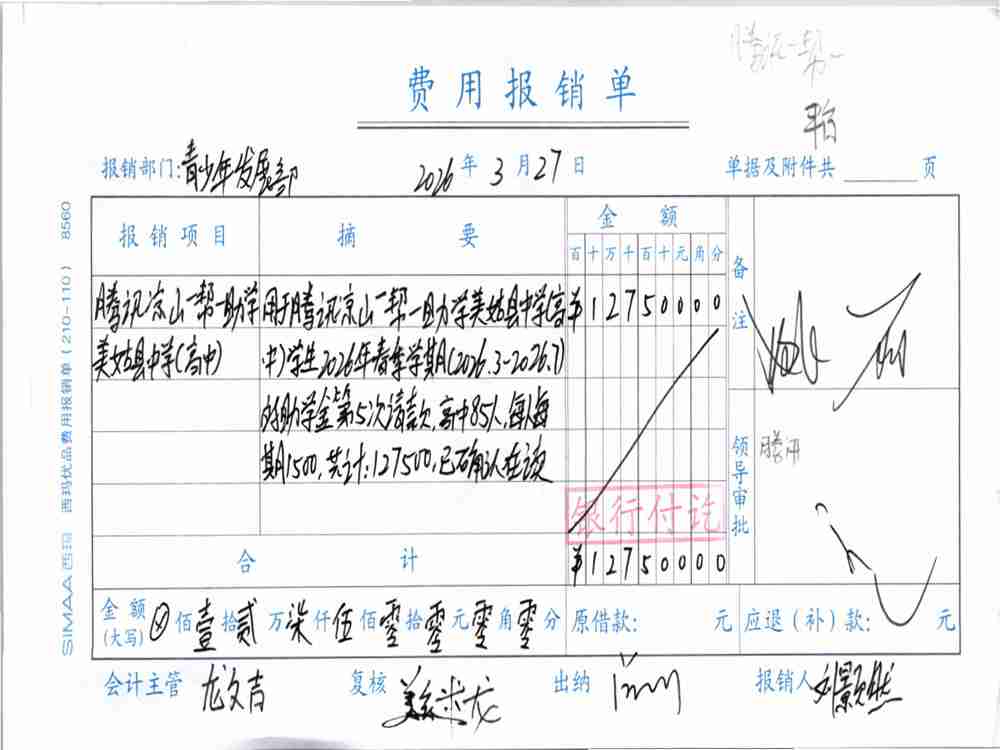 腾讯一帮一
费用报销单
报销部门:青少年发展部 2026年3月27日 单据及附件共 页
报销项目 摘要 金额 备注
百十万千百十元角分
腾讯凉山一帮一助学 用于腾讯凉山一帮一助学美姑县中学(高 ¥127500 00
美姑县中学(高中) 中)学生2026年春季学期(2026.3-2026.7)
的助学金第5次请款,高中85人,每人每
期1500,共计:127500,已确认在读
领导审批 腾讯
银行付讫
合计 ¥127500 00
金额(大写) ⊗佰壹拾贰万柒仟伍佰零拾零元零角零分 原借款: 元 应退(补)款: 元
会计主管 龙文吉 复核 出纳 报销人
SIMAA 西玛 西玛优品费用报销单(210-110) 8560